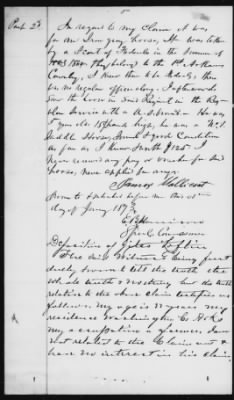 Part 2d
In regard to my claim it was
for one Iron gray horse, It was taken
by a Scout of Federals in the Summer of
1863 They belong to the 1st Arkansas
Cavalry, I knew them to be Federals, there
was no regular officer along. I afterwards
saw the horse in said Regiment in the Reg-
ular Service with a U.S. He was
7 years old 15 hands high, an
Saddle Horse, Sound & good Condition
as far as I know worth $125. I
have never recd any pay or voucher for said
horse, nor applied for any.
James
Sworn to & subscribed before me this 20th
day of Jany 1873
Special Commissioner
Deposition of Giles
The said Witness being first
duly sworn to tell the truth the
whole truth & nothing but the truth
in relation to the above claim testifies as
follows, my age is years my
residence Washington Co Arks
my occupation a farmer, I am
not related to the Claimant &
have no interest in his claim,